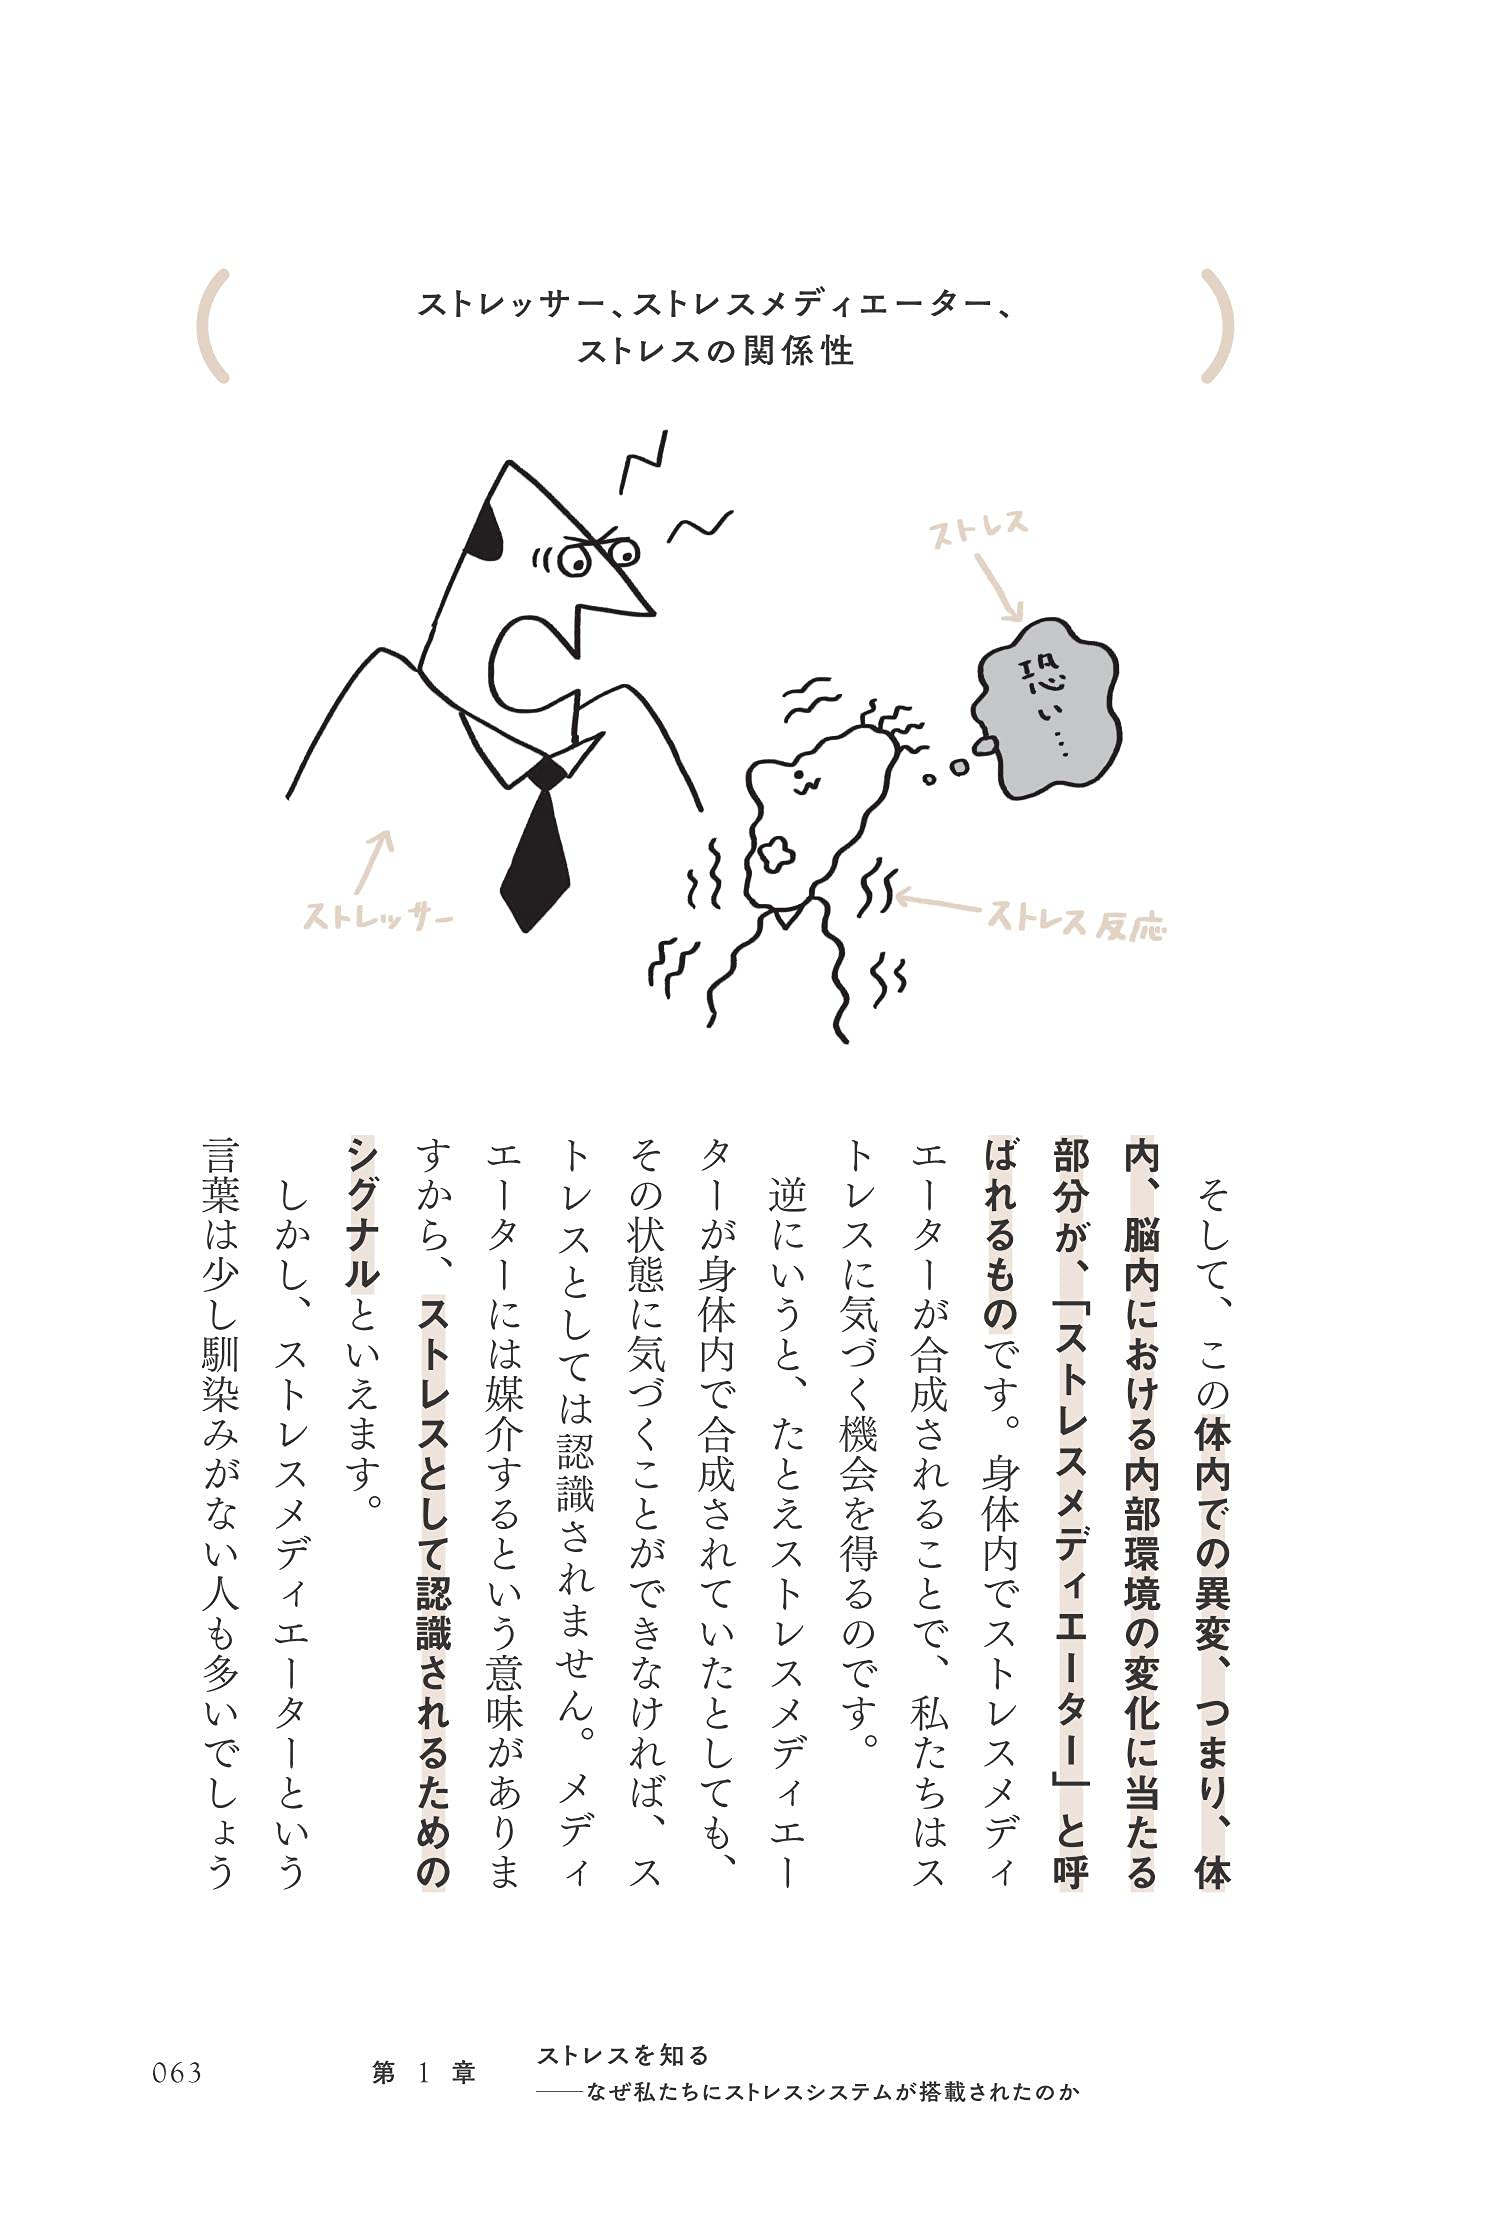 ストレッサー、ストレスメディエーター、
ストレスの関係性
ストレス
恐い……
ストレッサー
ストレス反応
そして、この体内での異変、つまり、体
内、脳内における内部環境の変化に当たる
部分が、「ストレスメディエーター」と呼
ばれるものです。身体内でストレスメディ
エーターが合成されることで、私たちはス
トレスに気づく機会を得るのです。
逆にいうと、たとえストレスメディエー
ターが身体内で合成されていたとしても、
その状態に気づくことができなければ、ス
トレスとしては認識されません。メディ
エーターには媒介するという意味がありま
すから、ストレスとして認識されるための
シグナルといえます。
しかし、ストレスメディエーターという
言葉は少し馴染みがない人も多いでしょう
063
第1章
ストレスを知る
──なぜ私たちにストレスシステムが搭載されたのか